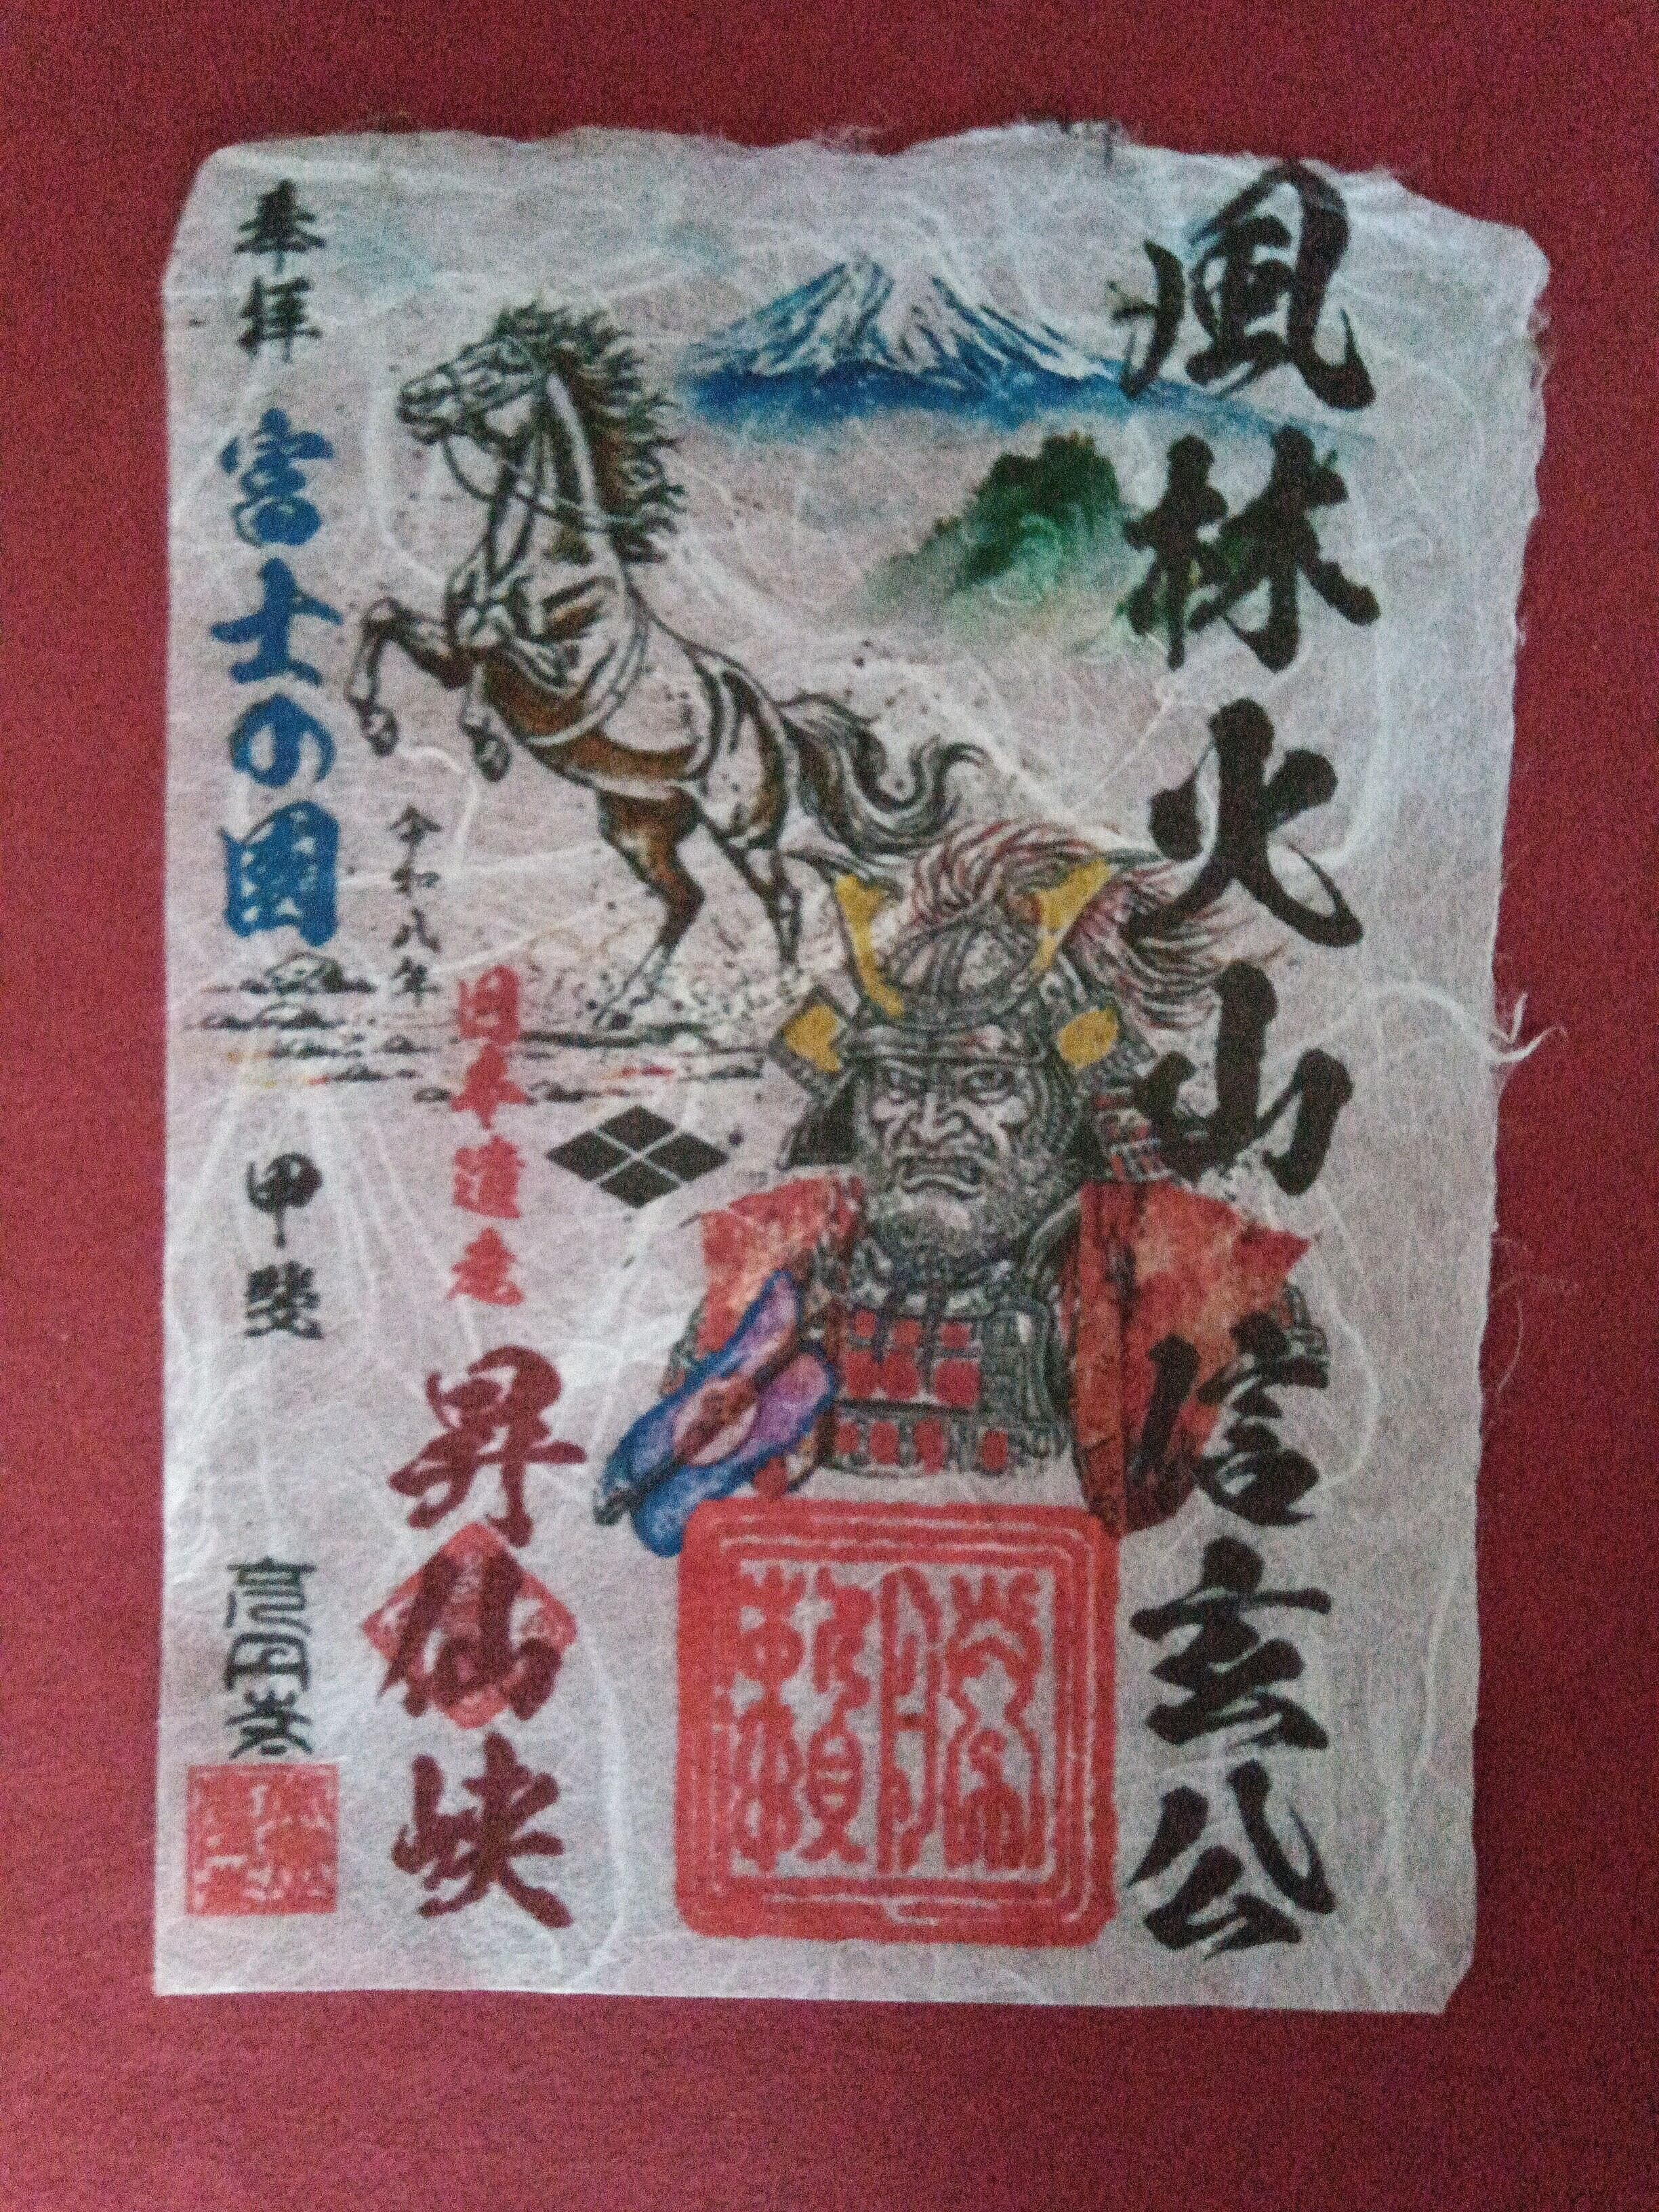 風林火山 信玄公
勝頼
令和八年
日本遺産
昇仙峡
奉拝
富士の国
甲斐